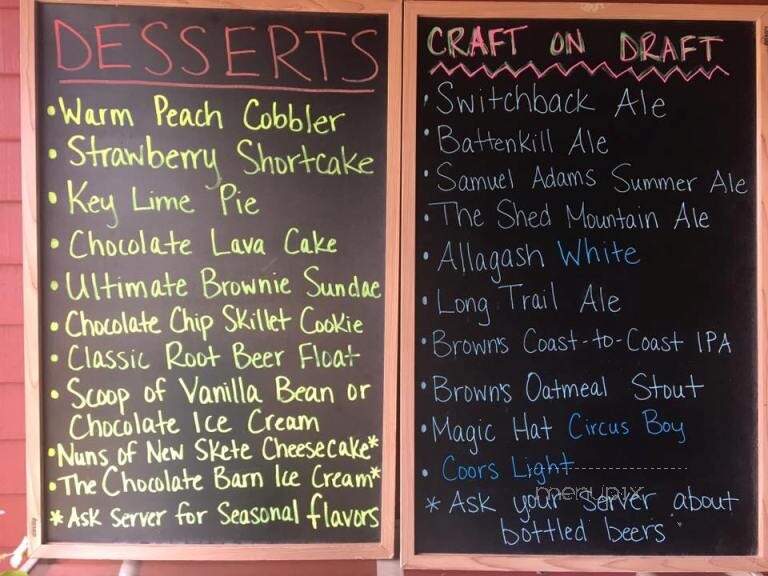 DESSERTS
• Warm Peach Cobbler
• Strawberry Shortcake
• Key Lime Pie
• Chocolate Lava Cake
• Ultimate Brownie Sundae
• Chocolate Chip Skillet Cookie
• Classic Root Beer Float
• Scoop of Vanilla Bean or
Chocolate Ice Cream
• Nuns of New Skete Cheesecake*
• The Chocolate Barn Ice Cream*
* Ask Server for Seasonal flavors
CRAFT ON DRAFT
• Switchback Ale
• Battenkill Ale
• Samuel Adams Summer Ale
• The Shed Mountain Ale
• Allagash White
• Long Trail Ale
• Brown's Coast-to-Coast IPA
• Brown's Oatmeal Stout
• Magic Hat Circus Boy
• Coors Light
menupix
* Ask your server about
bottled beers